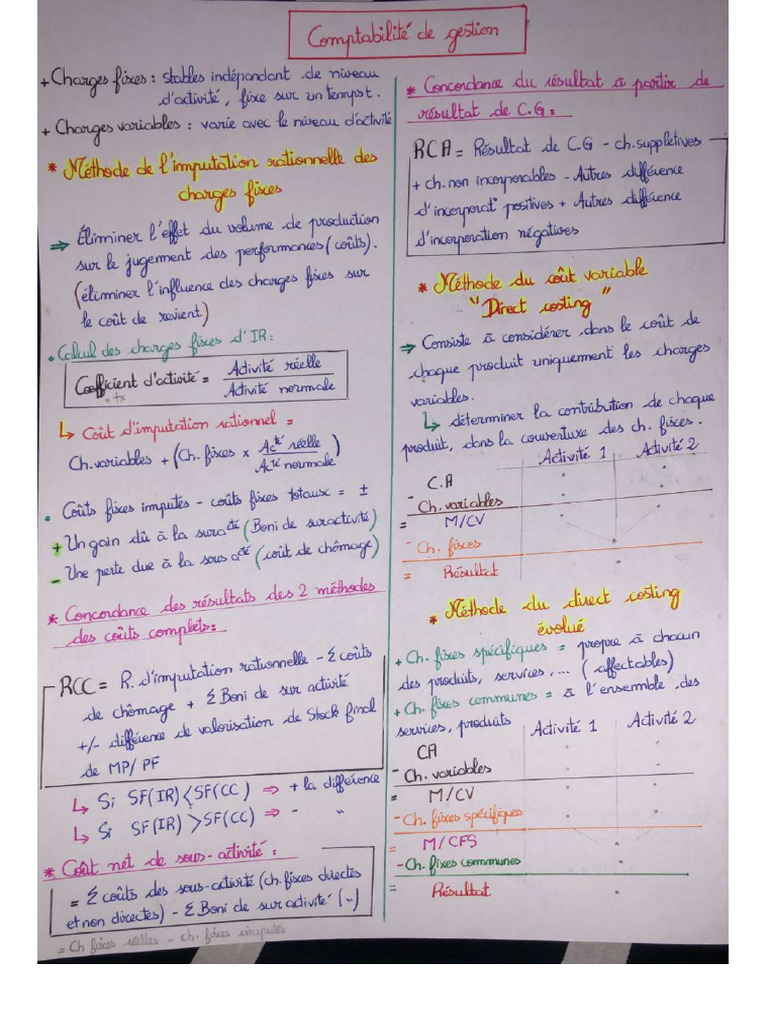 Comptabilité de gestion
+ Charges fixes : stables indépendant de niveau
d'activité, fixe sur un tempst.
+ Charges variables : varie avec le niveau d'activité
* Méthode de l'imputation rationnelle des
charges fixes
⇒ Éliminer l'effet du volume de production
sur le jugement des performances (coûts).
(éliminer l'influence des charges fixes sur
le coût de revient)
• Calcul des charges fixes d'IR :
Coefficient d'activité = Activité réelle / Activité normale
↳ Coût d'imputation rationnel =
Ch. variables + (Ch. fixes × Acté réelle / Acté normale)
• Coûts fixes imputés - coûts fixes totaux = ±
+ Un gain dû à la suraté (Boni de suractivité)
- Une perte due à la sous até (coût de chômage)
* Concordance des résultats des 2 méthodes
des coûts complets :
RCC = R. d'imputation rationnelle - Σ coûts
de chômage + Σ Boni de sur activité
+/- différence de valorisation de Stock final
de MP/PF
↳ Si SF(IR) < SF(CC) ⇒ + la différence
↳ Si SF(IR) > SF(CC) ⇒ - "
* Coût net de sous-activité :
= Σ coûts des sous-activité (ch. fixes directes
et non directes) - Σ Boni de sur activité (..)
= Ch fixes réelles - ch. fixes imputés
* Concordance du résultat à partir de
résultat de C.G :
RCA = Résultat de C.G - ch. suppletives
+ ch. non incorporables - Autres différence
d'incorporat° positives + Autres différence
d'incorporation négatives
* Méthode du coût variable
"Direct costing"
⇒ Consiste à considérer dans le coût de
chaque produit uniquement les charges
variables.
↳ déterminer la contribution de chaque
produit, dans la couverture des ch. fixes.
Activité 1 Activité 2
C.A
- Ch. variables
= M/CV
- Ch. fixes
= Résultat
* Méthode du direct costing
évolué
+ Ch. fixes spécifiques = propre à chacun
des produits, services, ... (affectables)
+ Ch. fixes communes = à l'ensemble des
services, produits
Activité 1 Activité 2
CA
- Ch. variables
= M/CV
- Ch. fixes spécifiques
= M/CFS
- Ch. fixes communes
= Résultat